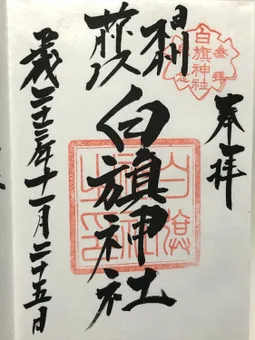 奉拝
相州
藤沢
白旗神社
平成二十三年十一月二十五日
参拝
白旗神社
記念
白旗
神社
之印